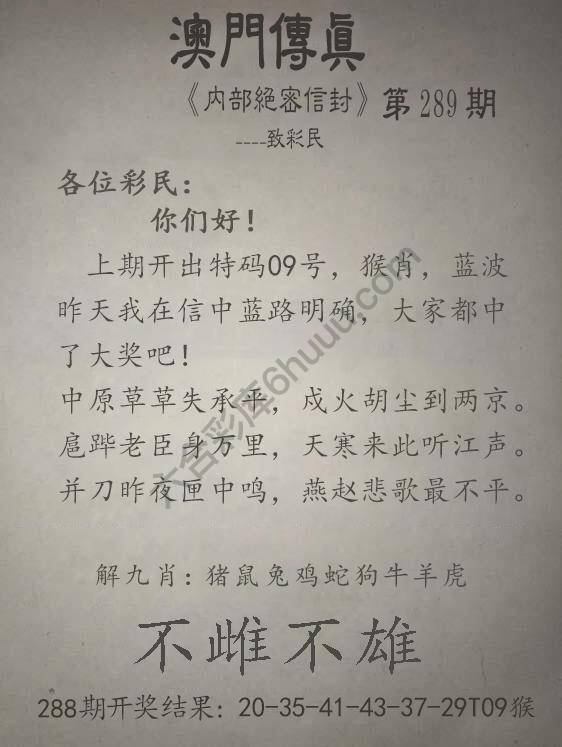 澳門傳真
《内部絕密信封》第289期
----致彩民
各位彩民：
你们好！
上期开出特码09号，猴肖，蓝波
昨天我在信中蓝路明确，大家都中
了大奖吧！
中原草草失承平，戍火胡尘到两京。
扈跸老臣身万里，天寒来此听江声。
并刀昨夜匣中鸣，燕赵悲歌最不平。
六合彩库6huuu.com
解九肖：猪鼠兔鸡蛇狗牛羊虎
不雌不雄
288期开奖结果：20-35-41-43-37-29T09猴